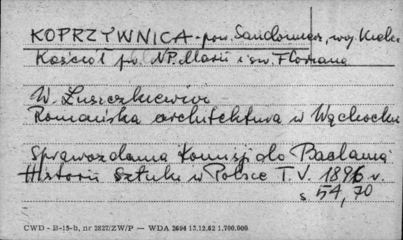 KOPRZYWNICA - pow. Sandomierz, woj. Kielce
Kościół pw. NP. Marii i św. Floriana
W. Łuszczkiewicz
Romańska architektura w Wąchocku
Sprawozdania Komisji do Badania
Historii Sztuki w Polsce T. V. 1896 r.
s. 54, 70
CWD - B-15-b, nr 2827/ZW/P — WDA 2604 13.12.62 1.700.000